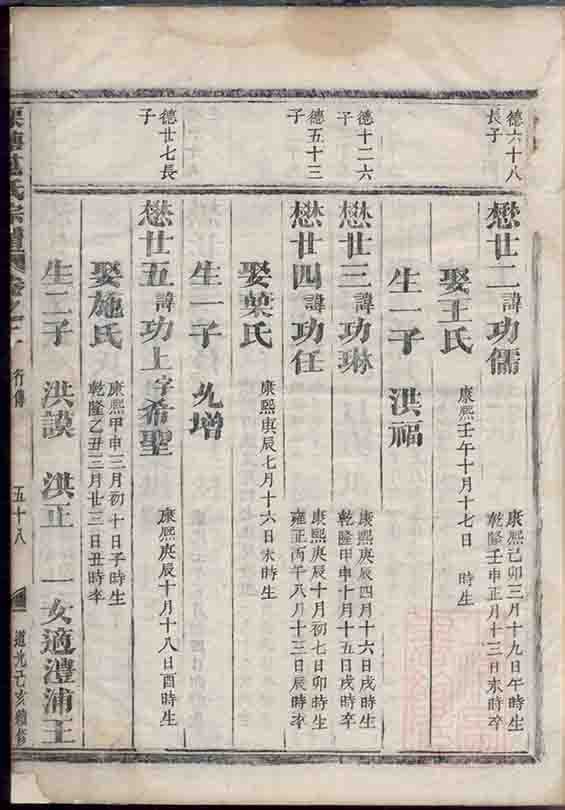 德六十八
長子
懋廿二諱功儒
康熙己卯三月十九日午時生
乾隆壬申正月十三日未時卒
娶王氏
康熙壬午十月十七日 時生
生一子 洪福
德十二六
子
懋廿三諱功琳
康熙庚辰四月十六日戌時生
乾隆甲申十月十五日戌時卒
德五十三
子
懋廿四諱功任
康熙庚辰十月初七日卯時生
雍正丙午八月十三日辰時卒
娶葉氏
康熙庚辰七月十六日未時生
生一子 兆增
德廿七長
子
懋廿五諱功上字希聖
康熙庚辰十月十八日酉時生
娶施氏
康熙甲申三月初十日子時生
乾隆乙丑三月廿三日丑時卒
生二子 洪謨 洪正 一女適澧浦王
氏宗譜卷之二 行傳 五十八 道光己亥續修